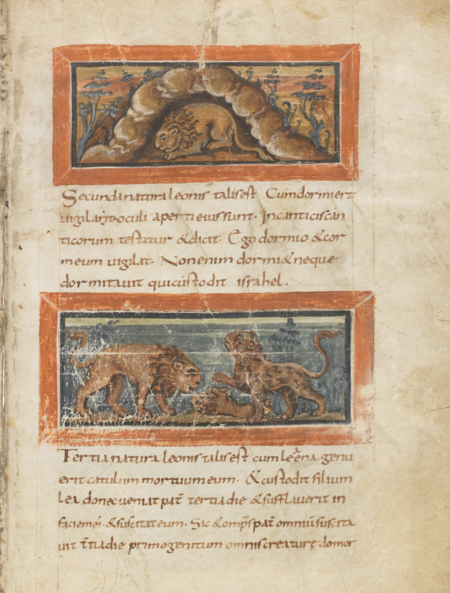 Secunda natura leonis talis est Cum dormierit
vigilant oculi aperti eius sunt. In canticis can
ticorum testatur & dicit. Ego dormio & cor
meum vigilat. Non enim dormi& neque
dormitavit qui custodit israhel.
Tertia natura leonis talis est cum leęna genu
erit catulum mortuum eum. & custodit filium
lea donec veniat pat̄ tertia die & sufflaverit in
faciem ei & suscitat eum. Sic & omp̄s pat̄ omniū suscita
vit t̄tia die primogenitum omnis creaturę domor